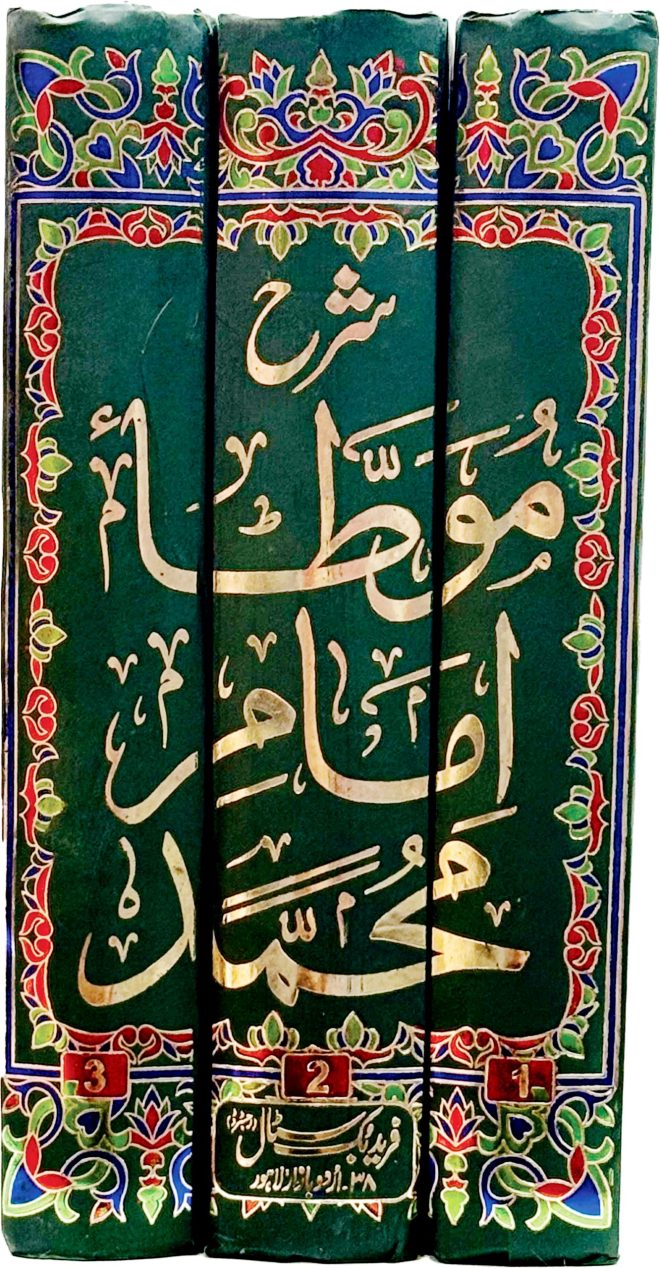 شرح
مُوَطَّأ
امام
محمّد
3 2 1
فرید بک سٹال (رجسٹرڈ)
۳۸۔اردو بازار لاہور